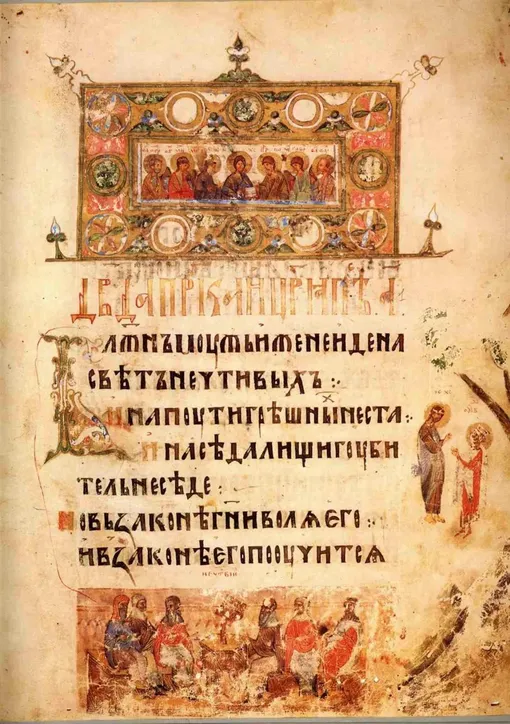 ДВДАПРРКАИЦРѦПѢ А
БЛЖНЪМОУЖЬИЖЕНЕИДЕНА
СВѢТЪНЕЧТИВЫХЪ :·
И НАПОУТИГРѢШНЫХНЕСТА :·
И НАСѢДАЛИЩИГОУБИ
ТЕЛЬНЕСѢДЕ
НОВЬЗАКОНѢГНИВОЛѦЕГО :·
ИВЗАКОНѢЕГОПООУЧИТСѦ